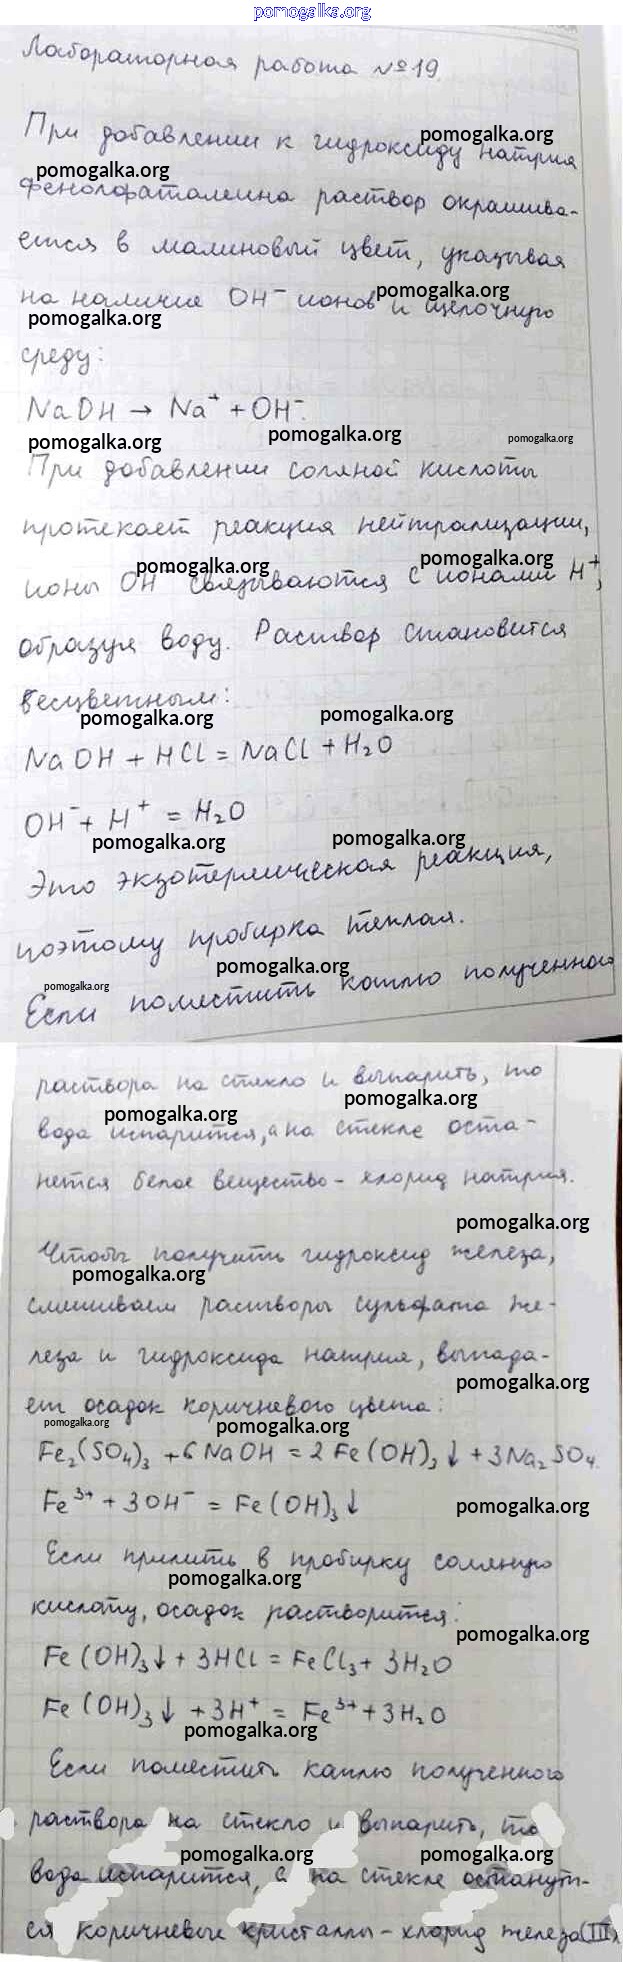 pomogalka.org
Лабораторная работа №19
При добавлении к гидроксиду натрия
pomogalka.org
pomogalka.org
фенолфталеина раствор окрашива-
ется в малиновый цвет, указывая
на наличие OH⁻ ионов и щелочную
pomogalka.org
pomogalka.org
среду:
NaOH → Na⁺ + OH⁻.
pomogalka.org
pomogalka.org
pomogalka.org
При добавлении соляной кислоты
протекает реакция нейтрализации,
pomogalka.org
pomogalka.org
ионы OH⁻ связываются с ионами H⁺,
образуя воду. Раствор становится
бесцветным:
pomogalka.org
pomogalka.org
NaOH + HCl = NaCl + H₂O
OH⁻ + H⁺ = H₂O
pomogalka.org
pomogalka.org
Это экзотермическая реакция,
поэтому пробирка теплая.
pomogalka.org
pomogalka.org
Если поместить каплю полученного
раствора на стекло и выпарить, то
pomogalka.org
pomogalka.org
вода испарится, а на стекле оста-
нется белое вещество - хлорид натрия.
pomogalka.org
Чтобы получить гидроксид железа,
pomogalka.org
смешиваем растворы сульфата же-
леза и гидроксида натрия, выпада-
pomogalka.org
ет осадок коричневого цвета:
pomogalka.org
pomogalka.org
Fe₂(SO₄)₃ + 6NaOH = 2Fe(OH)₃↓ + 3Na₂SO₄.
Fe³⁺ + 3OH⁻ = Fe(OH)₃↓
pomogalka.org
Если прилить в пробирку соляную
pomogalka.org
кислоту, осадок растворится:
pomogalka.org
Fe(OH)₃↓ + 3HCl = FeCl₃ + 3H₂O
Fe(OH)₃↓ + 3H⁺ = Fe³⁺ + 3H₂O
pomogalka.org
Если поместить каплю полученного
раствора на стекло и выпарить, то
pomogalka.org
pomogalka.org
вода испарится, а на стекле останут-
ся коричневые кристаллы - хлорид железа(III)